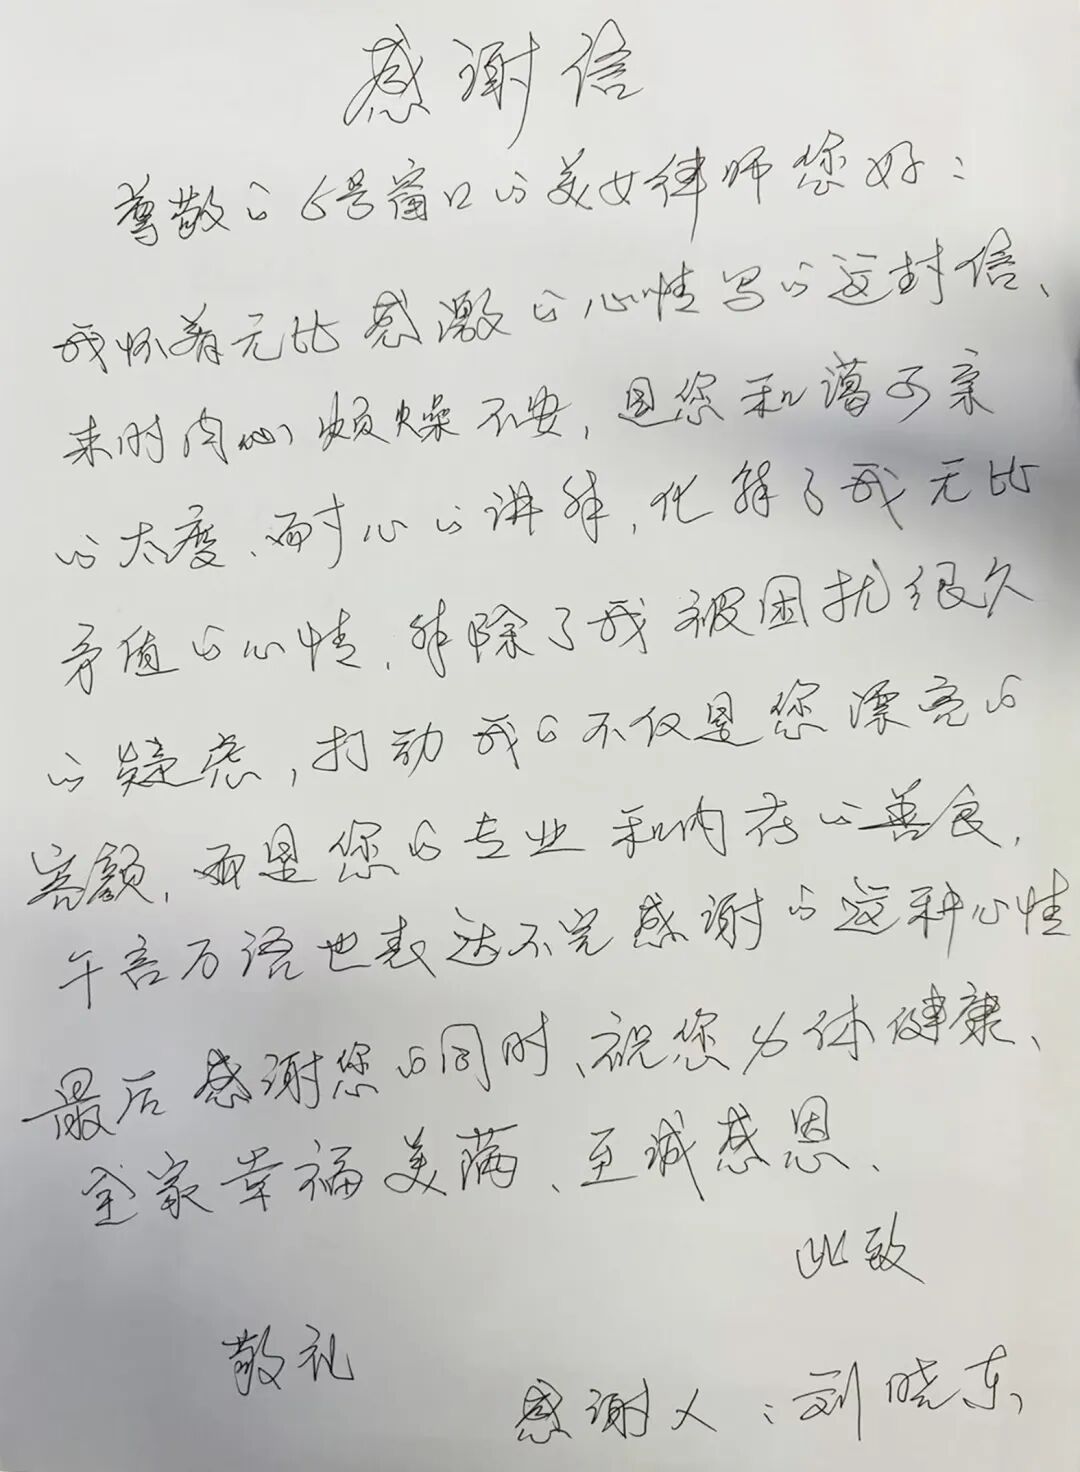 感谢信
尊敬的6号窗口的美女律师您好：
我怀着无比感激的心情写的这封信、
来时内心烦燥不安，是您和蔼可亲
的太度、耐心的讲解，化解了我无比
矛值的心情，解除了我被困扰很久
的疑虑，打动我的不仅是您漂亮的
容颜，而是您的专业和内存的善良，
千言万语也表达不完感谢的这种心情
最后感谢您的同时、祝您身体健康、
全家幸福美满、至诚感恩、
此致
敬礼
感谢人：刘晓东